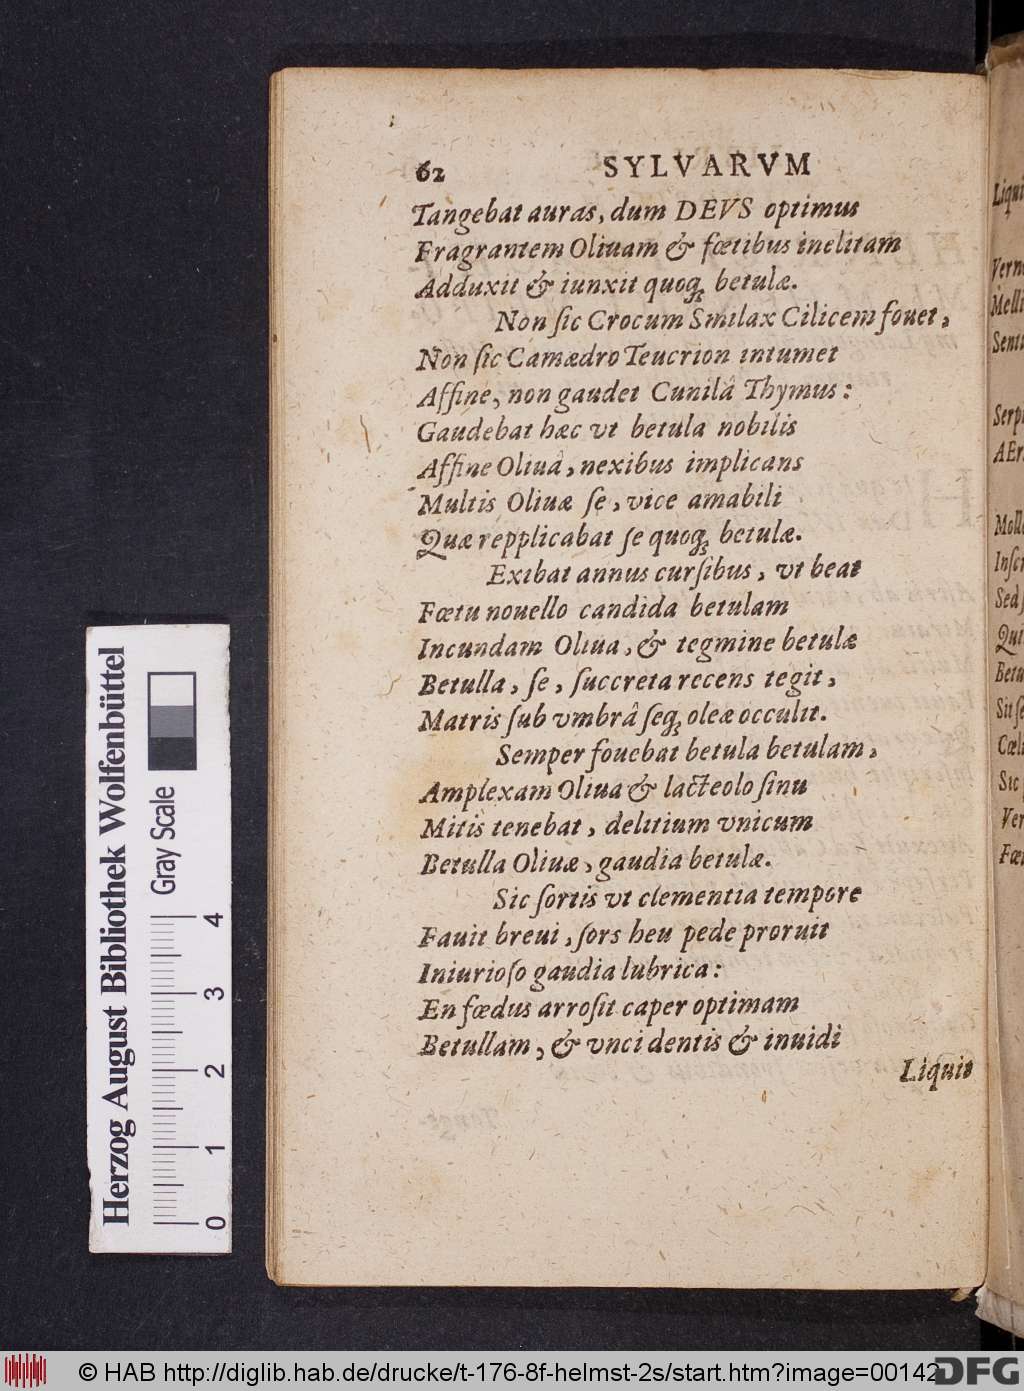 62 SYLVARVM
Tangebat auras, dum DEVS optimus
Fragrantem Oliuam & fœtibus inclitam
Adduxit & iunxit quoq; betulæ.
Non ſic Crocum Smilax Cilicem fouet,
Non ſic Camædro Teucrion intumet
Affine, non gaudet Cunilâ Thymus:
Gaudebat hæc vt betula nobilis
Affine Oliuâ, nexibus implicans
Multis Oliuæ ſe, vice amabili
Quæ repplicabat ſe quoq; betulæ.
Exibat annus curſibus, vt beat
Fœtu nouello candida betulam
Iucundam Oliua, & tegmine betulæ
Betulla, ſe, ſuccreta recens tegit,
Matris ſub vmbrâ ſeq; oleæ occulit.
Semper fouebat betula betulam,
Amplexam Oliua & lacteolo ſinu
Mitis tenebat, delitium vnicum
Betulla Oliuæ, gaudia betulæ.
Sic ſortis vt clementia tempore
Fauit breui, ſors heu pede proruit
Iniurioſo gaudia lubrica:
En fœdus arroſit caper optimam
Betullam, & vnci dentis & inuidi
Liquit
Liqui
Melli
Senti
Serp
Moll
Sed
Qui
Betu
Sic
Ver
Herzog August Bibliothek Wolfenbüttel
Gray Scale
0 1 2 3 4
© HAB http://diglib.hab.de/drucke/t-176-8f-helmst-2s/start.htm?image=00142
DFG